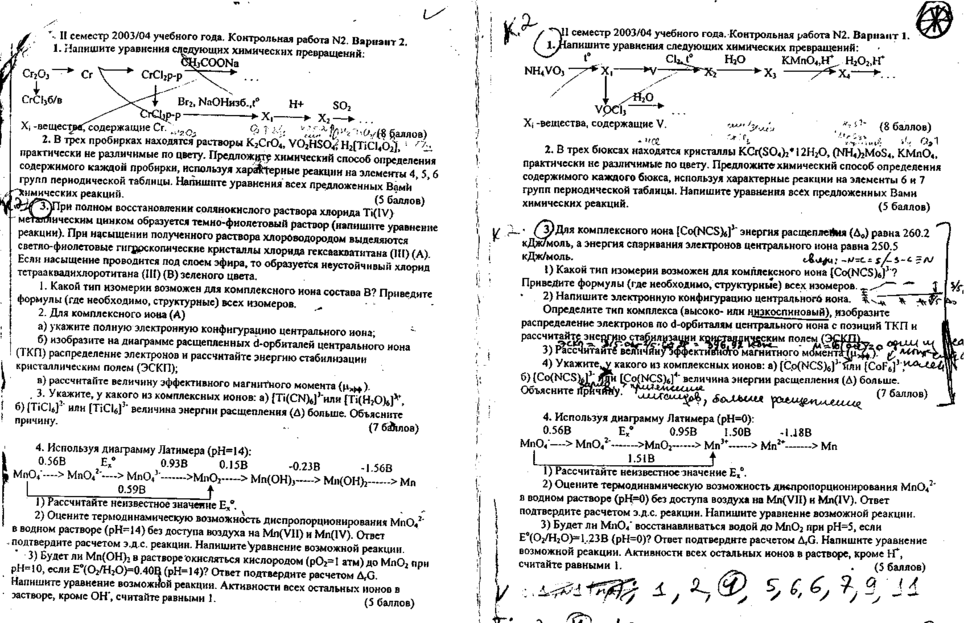 II семестр 2003/04 учебного года. Контрольная работа N2. Вариант 2.
1. Напишите уравнения следующих химических превращений:
CH₃COONa
Cr₂O₃ Cr CrCl₂р-р ...
CrCl₃б/в Br₂, NaOHизб.,t° H+ SO₂
CrCl₃р-р X₁ X₂ ...
Xᵢ -вещества, содержащие Cr. (8 баллов)
2. В трех пробирках находятся растворы K₂CrO₄, VO₂HSO₄, H₂[TiCl₄O₂],
практически не различимые по цвету. Предложите химический способ определения
содержимого каждой пробирки, используя характерные реакции на элементы 4, 5, 6
групп периодической таблицы. Напишите уравнения всех предложенных Вами
химических реакций. (5 баллов)
3. При полном восстановлении солянокислого раствора хлорида Ti(IV)
металлическим цинком образуется темно-фиолетовый раствор (напишите уравнение
реакции). При насыщении полученного раствора хлороводородом выделяются
светло-фиолетовые гигроскопические кристаллы хлорида гексаакватитана (III) (A).
Если насыщение проводится под слоем эфира, то образуется неустойчивый хлорид
тетрааквадихлоротитана (III) (B) зеленого цвета.
1. Какой тип изомерии возможен для комплексного иона состава B? Приведите
формулы (где необходимо, структурные) всех изомеров.
2. Для комплексного иона (A)
а) укажите полную электронную конфигурацию центрального иона;
б) изобразите на диаграмме расщепленных d-орбиталей центрального иона
(ТКП) распределение электронов и рассчитайте энергию стабилизации
кристаллическим полем (ЭСКП);
в) рассчитайте величину эффективного магнитного момента (μэфф).
3. Укажите, у какого из комплексных ионов: а) [Ti(CN)₆]³⁻или [Ti(H₂O)₆]³⁺,
б) [TiCl₆]²⁻ или [TiCl₆]³⁻ величина энергии расщепления (Δ) больше. Объясните
причину. (7 баллов)
4. Используя диаграмму Латимера (pH=14):
0.56В Eₓ° 0.93В 0.15В -0.23В -1.56В
MnO₄⁻----> MnO₄²⁻----> MnO₄³⁻------->MnO₂-----> Mn(OH)₃-----> Mn(OH)₂------> Mn
0.59В
1) Рассчитайте неизвестное значение Eₓ°.
2) Оцените термодинамическую возможность диспропорционирования MnO₄²⁻
в водном растворе (pH=14) без доступа воздуха на Mn(VII) и Mn(IV). Ответ
подтвердите расчетом э.д.с. реакции. Напишите уравнение возможной реакции.
3) Будет ли Mn(OH)₂ в растворе окисляться кислородом (pO₂=1 атм) до MnO₂ при
pH=10, если E°(O₂/H₂O)=0.40В (pH=14)? Ответ подтвердите расчетом ΔᵣG.
Напишите уравнение возможной реакции. Активности всех остальных ионов в
растворе, кроме OH⁻, считайте равными 1. (5 баллов)
К.2
II семестр 2003/04 учебного года. Контрольная работа N2. Вариант 1.
1. Напишите уравнения следующих химических превращений:
t° Cl₂, t° H₂O KMnO₄,H⁺ H₂O₂,H⁺
NH₄VO₃ X₁ V X₂ X₃ X₄ ...
H₂O
VOCl₃ ...
Xᵢ -вещества, содержащие V. (8 баллов)
2. В трех бюксах находятся кристаллы KCr(SO₄)₂*12H₂O, (NH₄)₂MoS₄, KMnO₄,
практически не различимые по цвету. Предложите химический способ определения
содержимого каждого бюкса, используя характерные реакции на элементы 6 и 7
групп периодической таблицы. Напишите уравнения всех предложенных Вами
химических реакций. (5 баллов)
К 2.
3 Для комплексного иона [Co(NCS)₆]³⁻ энергия расщепления (Δₒ) равна 260.2
кДж/моль, а энергия спаривания электронов центрального иона равна 250.5
кДж/моль.
1) Какой тип изомерии возможен для комплексного иона [Co(NCS)₆]³⁻?
Приведите формулы (где необходимо, структурные) всех изомеров.
2) Напишите электронную конфигурацию центрального иона.
Определите тип комплекса (высоко- или низкоспиновый), изобразите
распределение электронов по d-орбиталям центрального иона с позиций ТКП и
рассчитайте энергию стабилизации кристаллическим полем (ЭСКП).
3) Рассчитайте величину эффективного магнитного момента (μэфф).
4) Укажите, у какого из комплексных ионов: а) [Co(NCS)₆]³⁻ или [CoF₆]³⁻,
б) [Co(NCS)₆]³⁻ или [Co(NCS)₆]⁴⁻ величина энергии расщепления (Δ) больше.
Объясните причину. (7 баллов)
больше расщепление
4. Используя диаграмму Латимера (pH=0):
0.56В Eₓ° 0.95В 1.50В -1.18В
MnO₄⁻----> MnO₄²⁻------->MnO₂------> Mn³⁺------> Mn²⁺-------> Mn
1.51В
1) Рассчитайте неизвестное значение Eₓ°.
2) Оцените термодинамическую возможность диспропорционирования MnO₄²⁻
в водном растворе (pH=0) без доступа воздуха на Mn(VII) и Mn(IV). Ответ
подтвердите расчетом э.д.с. реакции. Напишите уравнение возможной реакции.
3) Будет ли MnO₄⁻ восстанавливаться водой до MnO₂ при pH=5, если
E°(O₂/H₂O)=1.23В (pH=0)? Ответ подтвердите расчетом ΔᵣG. Напишите уравнение
возможной реакции. Активности всех остальных ионов в растворе, кроме H⁺,
считайте равными 1. (5 баллов)
1, 2, 4, 5, 6, 6, 7, 9, 11